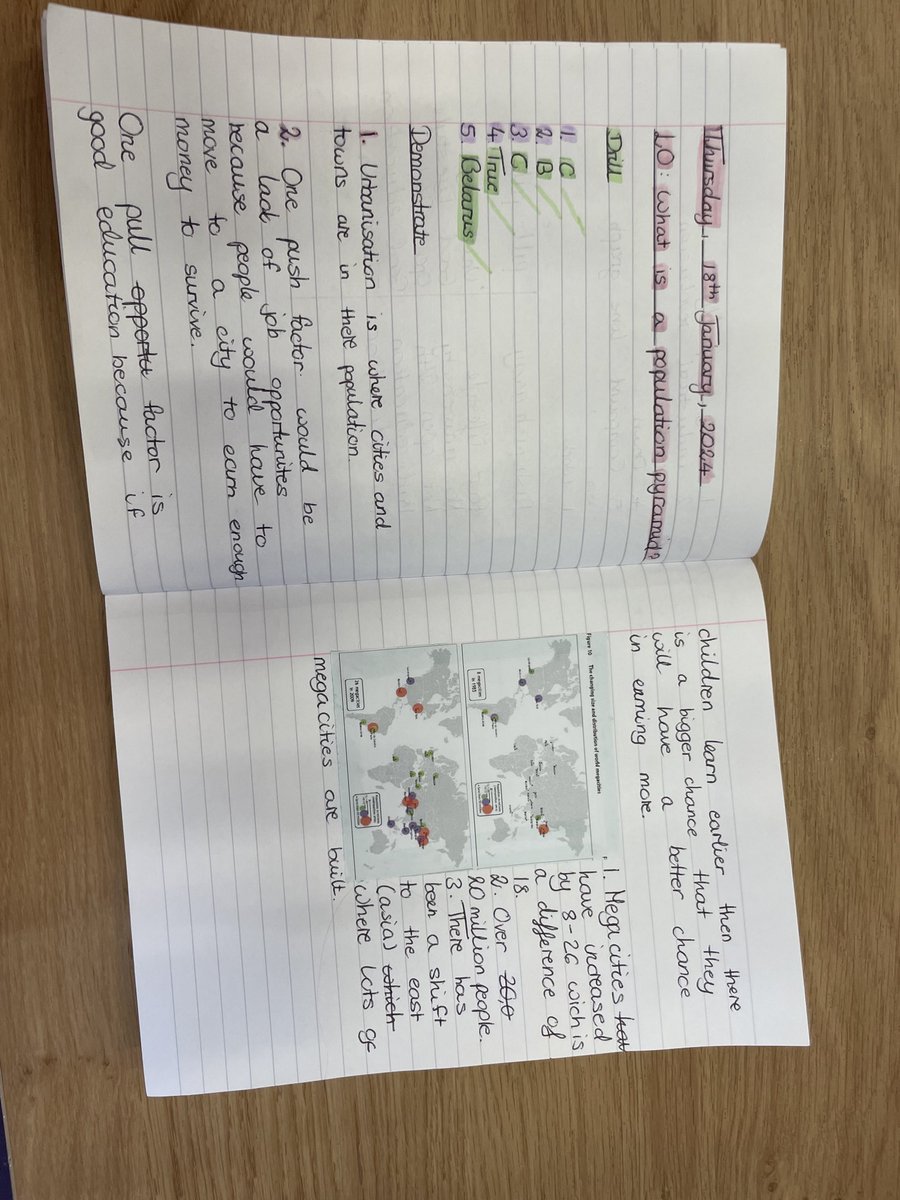 Thursday, 18th January, 2024
LO: What is a population pyramid?
Drill
1. C
2. B
3. C
4. True
5. Belarus
Demonstrate
1. Urbanisation is where cities and
towns are in there population.
2. One push factor would be
a lack of job opportunites
because people would have to
move to a city to earn enough
money to survive.
One pull opportu factor is
good education because if
children learn earlier then there
is a bigger chance that they
will have a better chance
in earning more.
Figure 10 The changing size and distribution of world megacities
8 megacities
in 1985
26 megacities
in 2009
1. Megacities hav
have increased
by 8-26 wich is
a difference of
18.
2. Over 200
20 million people.
3. There has
been a shift
to the east
(asia) which
where lots of
megacities are built.